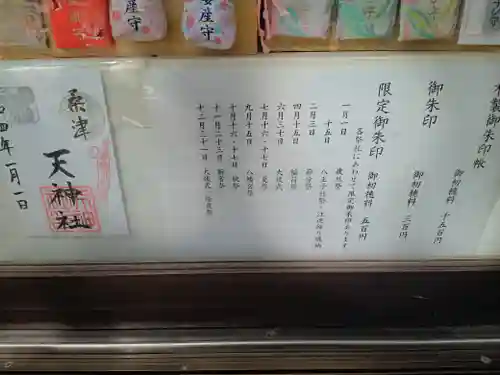 御朱印帳
御初穂料 千五百円
御朱印
御初穂料 三百円
限定御朱印
御初穂料 五百円
各祭祀にあわせて限定御朱印あります
一月一日 歳旦祭
十五日
二月三日 節分祭
四月十五日 稲荷祭
六月三十日 大祓式
七月十六・十七日 夏祭
九月十五日 八幡宮祭
十月十六・十七日 秋祭
十一月二十三日 新嘗祭
十二月三十一日 大祓式 除夜祭
桑津
天神社
四年一月一日